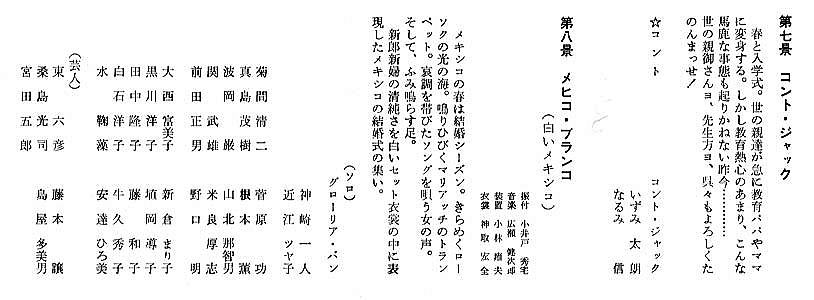 第七景 コント・ジャック
春と入学式。世の親達が急に教育パパやママ
に変身する。しかし教育熱心のあまり、こんな
馬鹿な事態も起りかねない昨今…………
世の親御さんヨ、先生方ヨ、呉々もよろしくた
のんまっせ！
☆コント
コント・ジャック
いずみ 太朗
なるみ 信
第八景 メヒコ・ブランコ
(白いメキシコ)
振付 小井戸 秀宅
音楽 広瀬 健次郎
装置 小林 雍夫
衣裳 神取 宏全
メキシコの春は結婚シーズン。きらめくロー
ソクの光の海。鳴りひびくマリアッチのトラン
ペット。哀調を帯びたソングを唄う女の声。
そして、ふみ鳴らす足。
新郎新婦の清純さを白いセット、衣裳の中に表
現したメキシコの結婚式の集い。
(ソロ)
グローリア・パン
神崎 一人
近江 ツヤ子
菊間 清二
真島 茂樹
波岡 巌
関 武雄
前田 正男
菅原 功
根本 薫
山北 那智男
米良 厚志
野口 明
大西 富美子
黒川 洋子
田中 隆子
白石 洋子
水 鞠藻
新倉 まり子
埴岡 導子
藤 和子
牛久 秀子
安達 ひろ美
(芸人)
東 六彦
桑島 光司
宮田 五郎
藤本 譲
島屋 多美男